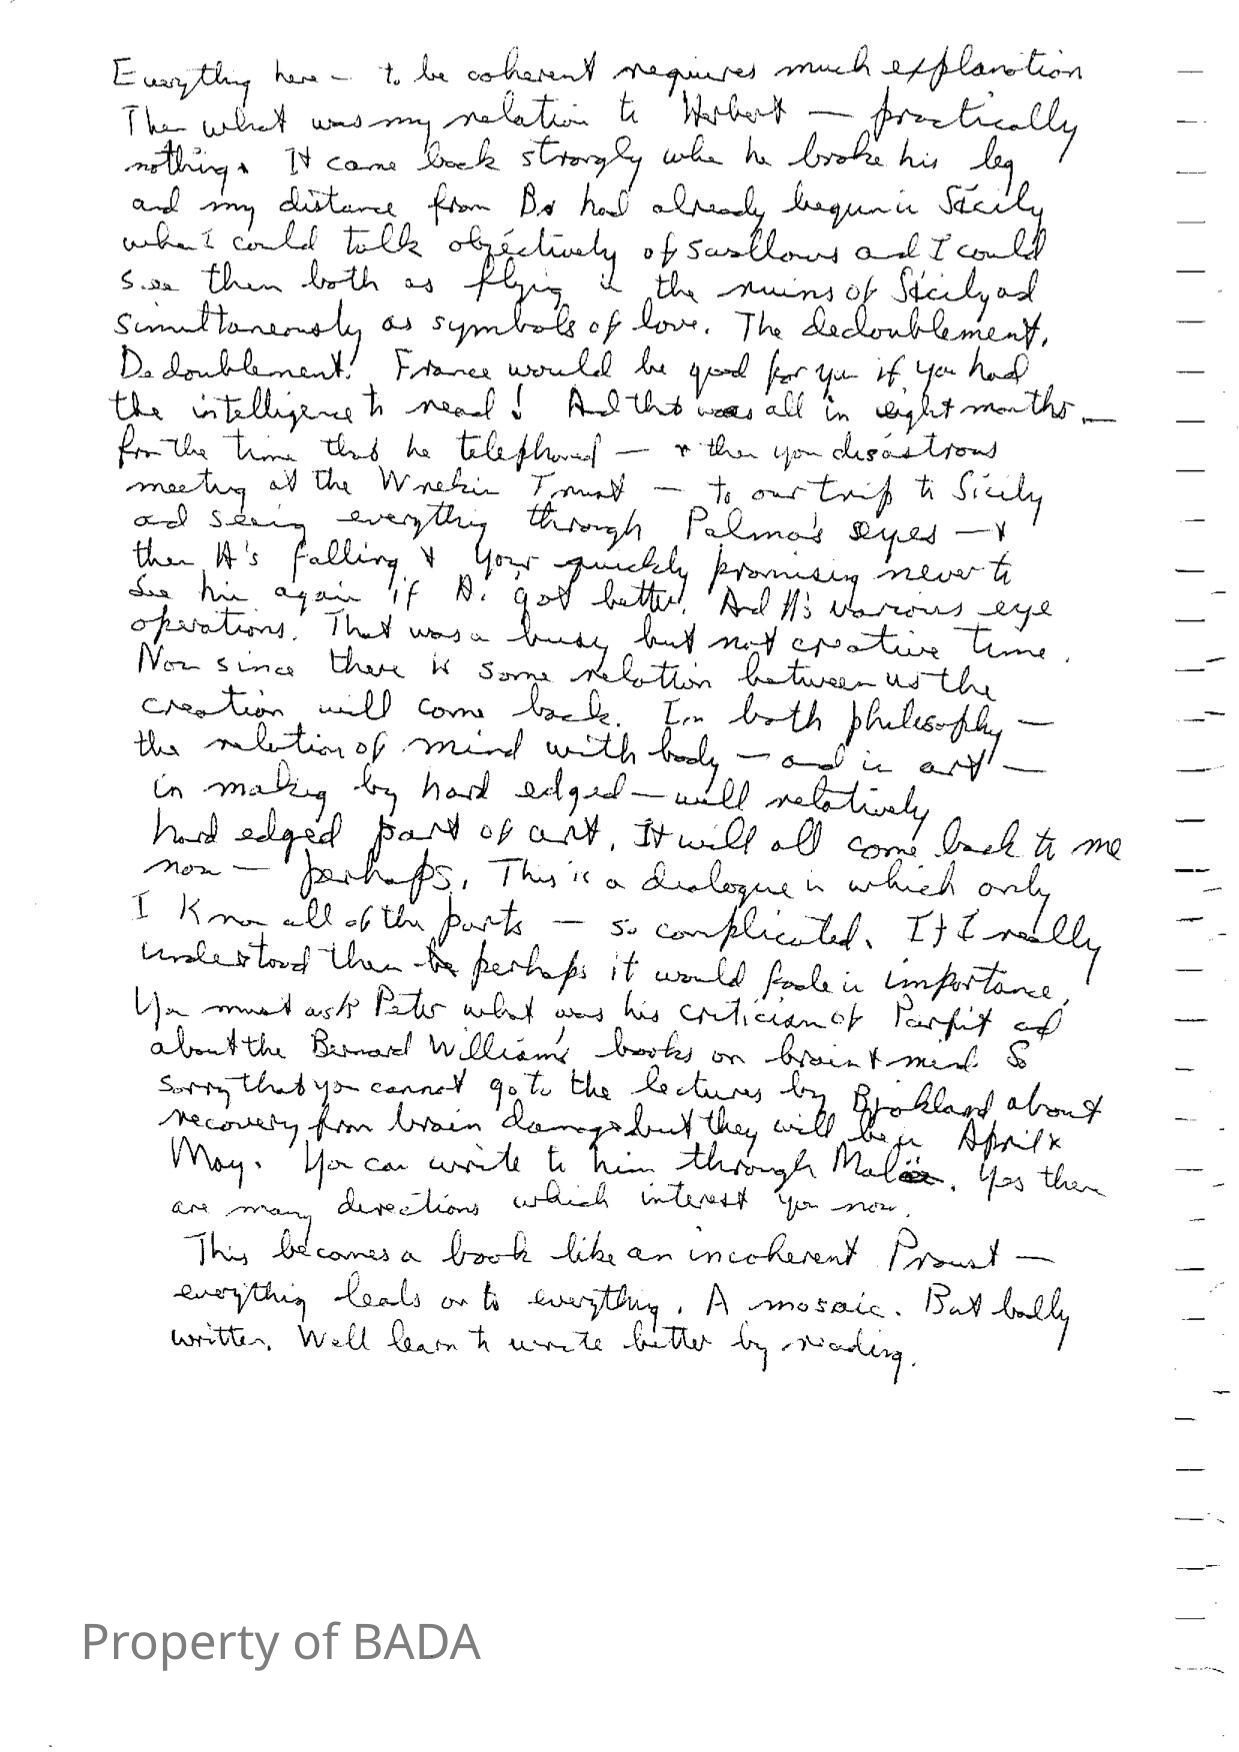 Everything here - to be coherent requires much explanation
Then what was my relation to Herbert — practically
nothing. It came back strongly when he broke his leg
and my distance from had already begun in Sicily
when I could talk objectively of swallows and I could
see them both as flying in the ruins of Sicily and
simultaneously as symbols of love. The dedoublement.
Dedoublement! France would be good for you if you had
the intelligence to read! And that was all in eight months —
from the time that he telephoned — & then your disastrous
meeting at the Wrekin Trust — to our trip to Sicily
and seeing everything through Palma's eyes — &
then H's falling & your quickly promising never to
see him again if got better. And H's various eye
operations. That was a busy but not creative time.
Now since there is some relation between us the
creation will come back. In both philosophy —
the relation of mind with body — and in art —
in making by hard edged — well relatively
hard edged part of art. It will all come back to me
now — perhaps. This is a dialogue in which only
I know all of the parts — so complicated. If I really
understood then perhaps it would fade in importance.
You must ask Peter what was his criticism of Parfit and
about the Bernard Williams books on brain & mind. So
sorry that you cannot go to the lectures by about
recovery from brain damage but they will be in April &
May. You can write to him through . Yes there
are many directions which interest you now.
This becomes a book like an incoherent Proust —
everything leads on to everything. A mosaic. But badly
written. Well learn to write better by reading.
Property of BADA